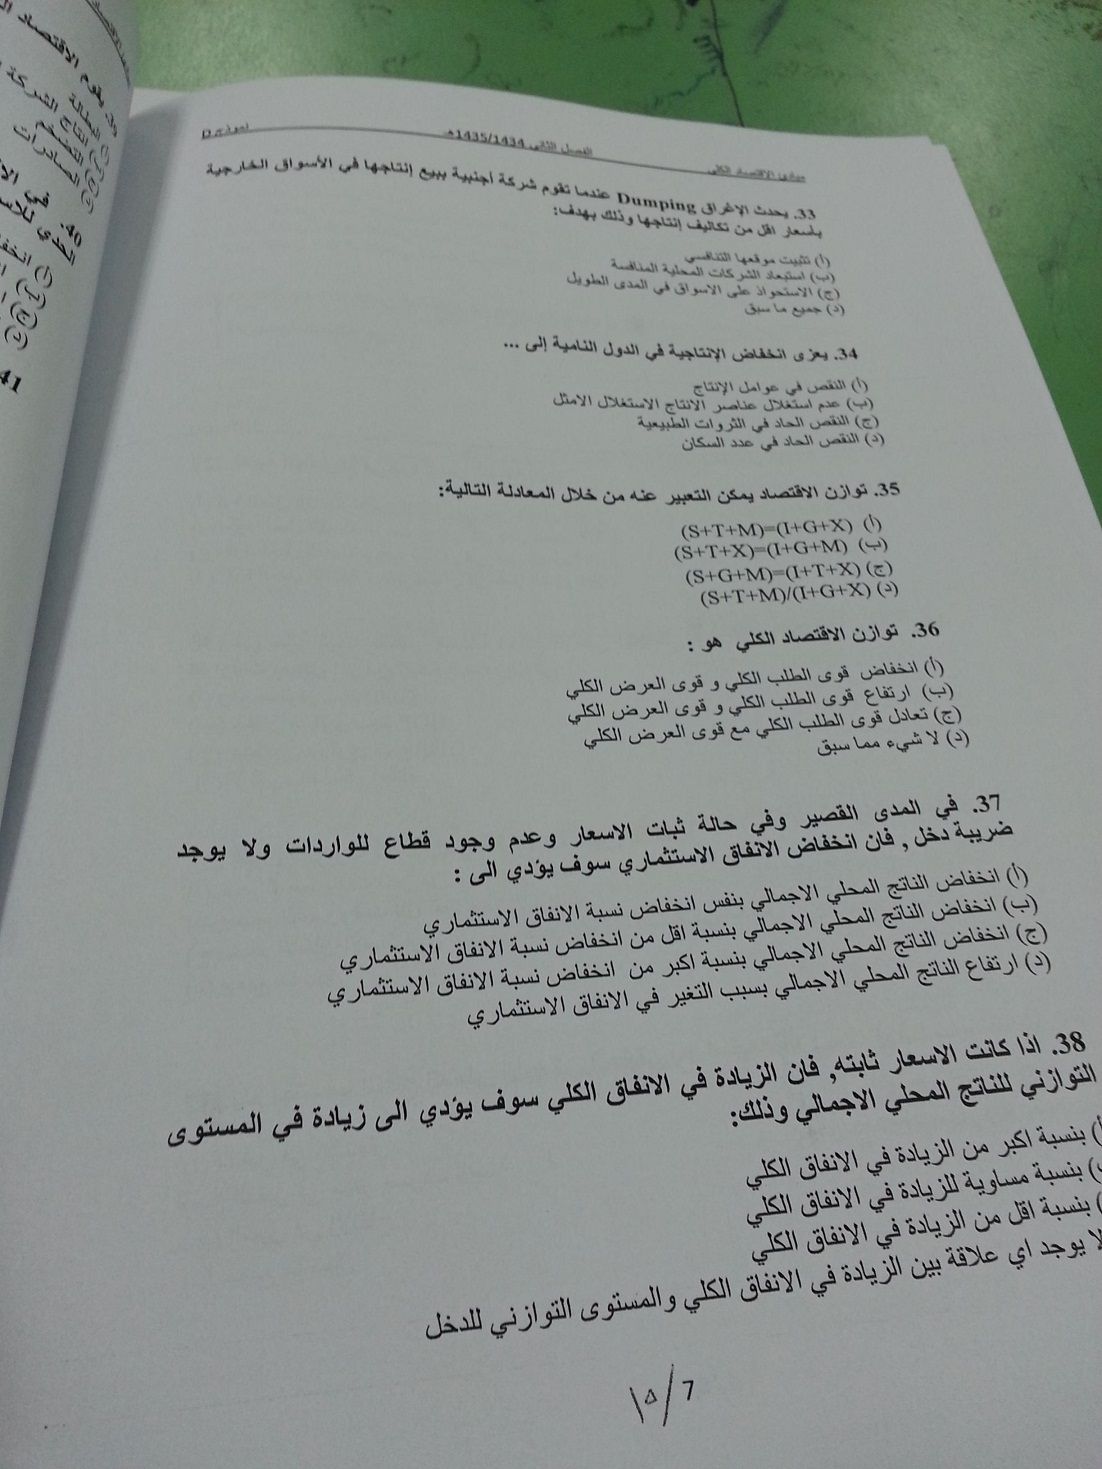 مبادئ الاقتصاد الكلي
الفصل الثاني 1435/1434هـ
نموذج D
33. يحدث الإغراق Dumping عندما تقوم شركة أجنبية ببيع إنتاجها في الأسواق الخارجية
بأسعار اقل من تكاليف إنتاجها وذلك بهدف:
(أ) تثبيت موقعها التنافسي
(ب) استبعاد الشركات المحلية المنافسة
(ج) الاستحواذ على الاسواق في المدى الطويل
(د) جميع ما سبق
34. يعزى انخفاض الإنتاجية في الدول النامية إلى ...
(أ) النقص في عوامل الإنتاج
(ب) عدم استغلال عناصر الانتاج الاستغلال الامثل
(ج) النقص الحاد في الثروات الطبيعية
(د) النقص الحاد في عدد السكان
35. توازن الاقتصاد يمكن التعبير عنه من خلال المعادلة التالية:
(أ) (S+T+M)=(I+G+X)
(ب) (S+T+X)=(I+G+M)
(ج) (S+G+M)=(I+T+X)
(د) (S+T+M)/(I+G+X)
36. توازن الاقتصاد الكلي هو :
(أ) انخفاض قوى الطلب الكلي و قوى العرض الكلي
(ب) ارتفاع قوى الطلب الكلي و قوى العرض الكلي
(ج) تعادل قوى الطلب الكلي مع قوى العرض الكلي
(د) لا شيء مما سبق
37. في المدى القصير وفي حالة ثبات الاسعار وعدم وجود قطاع للواردات ولا يوجد
ضريبة دخل , فان انخفاض الانفاق الاستثماري سوف يؤدي الى :
(أ) انخفاض الناتج المحلي الاجمالي بنفس انخفاض نسبة الانفاق الاستثماري
(ب) انخفاض الناتج المحلي الاجمالي بنسبة اقل من انخفاض نسبة الانفاق الاستثماري
(ج) انخفاض الناتج المحلي الاجمالي بنسبة اكبر من انخفاض نسبة الانفاق الاستثماري
(د) ارتفاع الناتج المحلي الاجمالي بسبب التغير في الانفاق الاستثماري
38. اذا كانت الاسعار ثابته, فان الزيادة في الانفاق الكلي سوف يؤدي الى زيادة في المستوى
التوازني للناتج المحلي الاجمالي وذلك:
أ) بنسبة اكبر من الزيادة في الانفاق الكلي
) بنسبة مساوية للزيادة في الانفاق الكلي
) بنسبة اقل من الزيادة في الانفاق الكلي
لا يوجد اي علاقة بين الزيادة في الانفاق الكلي والمستوى التوازني للدخل
7/١٥
39. يقوم الاقتصاد
(أ) البطالة
(ب) انتاج الشركة
(ج) التضخم
(د) الصادرات
40. في
(أ)
(ب)
(ج)
(د)
41